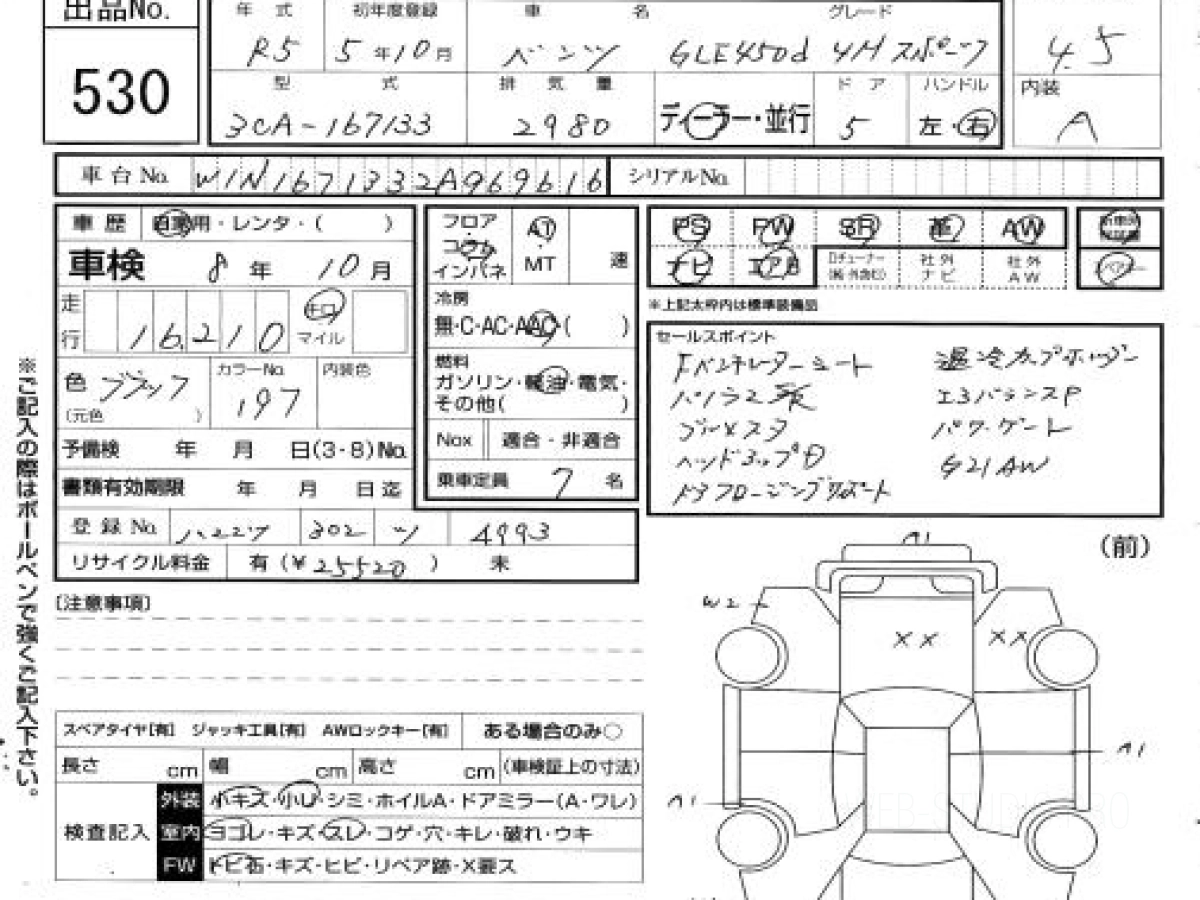 出品No.
530
年式 初年度登録 車名 グレード
R5 5年10月 ベンツ GLE450d 4M スポーツ
4.5
型式 排気量 ドア ハンドル
3CA-167133 2980 ディーラー・並行 5 左・右
内装
A
車台No. W1N1671332A969616 シリアルNo.
車歴 自家用・レンタ・( )
車検 8年 10月
走行 16,210 キロ マイル
色 ブラック
(元色 )
カラーNo. 197
内装色
予備検 年 月 日(3-8)No.
書類有効期限 年 月 日迄
登録No. 302 ツ 4993
リサイクル料金 有(¥25520) 未
フロア
コラム
インパネ
AT
MT
速
冷房
無・C・AC・AAC・( )
燃料
ガソリン・軽油・電気・
その他( )
Nox 適合・非適合
乗車定員 7名
PS PW SR 革 AW
ナビ エアB 社外ナビ 社外AW
※上記太枠内は標準装備品
セールスポイント
ブルメスタ
ヘッドアップD
パワーゲート
G21AW
※ご記入の際はボールペンで強くご記入下さい。
〔注意事項〕
スペアタイヤ[有] ジャッキ工具[有] AWロックキー[有] ある場合のみ○
長さ cm 幅 cm 高さ cm (車検証上の寸法)
検査記入
外装 小キズ・小U・シミ・ホイルA・ドアミラー(A・ワレ)
室内 ヨゴレ・キズ・スレ・コゲ・穴・キレ・破れ・ウキ
FW トビ石・キズ・ヒビ・リペア跡・X要ス
(前)
A1
W2
XX
XX
A1
A1